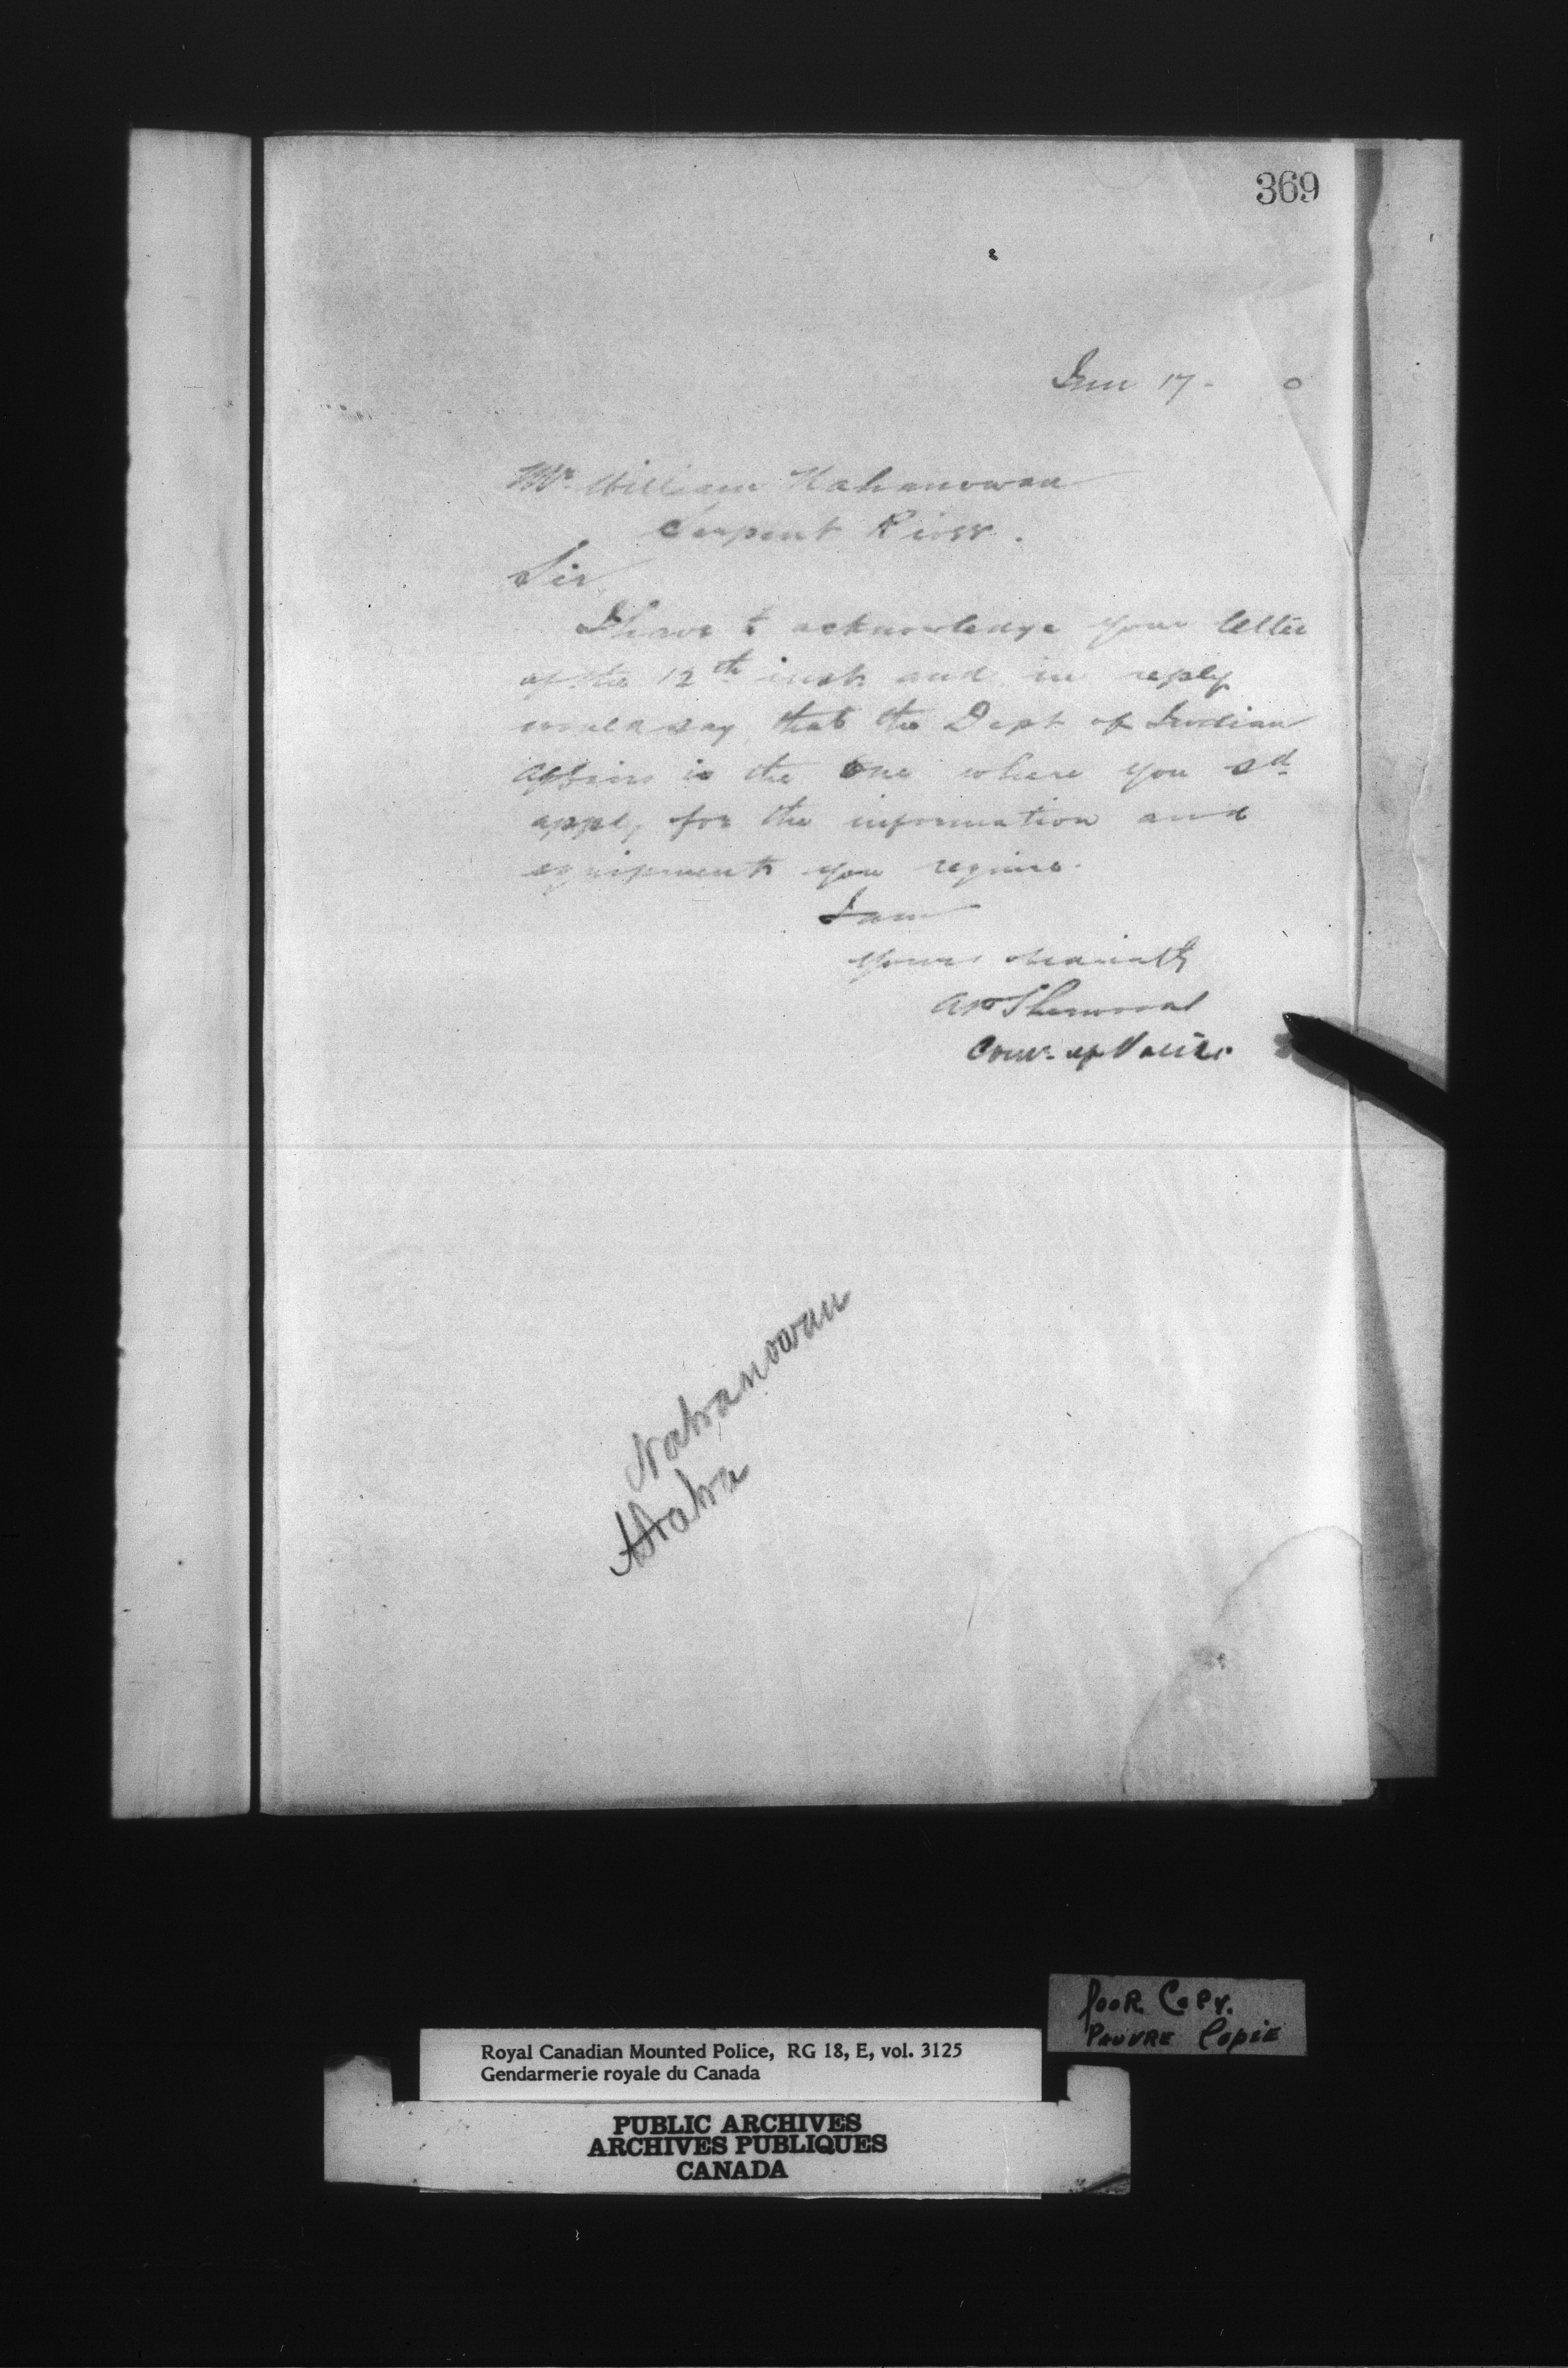 369
17 - 0
Mr. William Nahanowan
Serpent River.
Sir
I have to acknowledge your letter
of the 12th inst and in reply
would say that the Dept of Indian
Affairs is the one where you sd
apply for the information and
equipments you require.
I am
Yours
AP Sherwood
Com. of Police.
Nahanowan
Poor Copy.
Pauvre Copie
Royal Canadian Mounted Police, RG 18, E, vol. 3125
Gendarmerie royale du Canada
PUBLIC ARCHIVES
ARCHIVES PUBLIQUES
CANADA